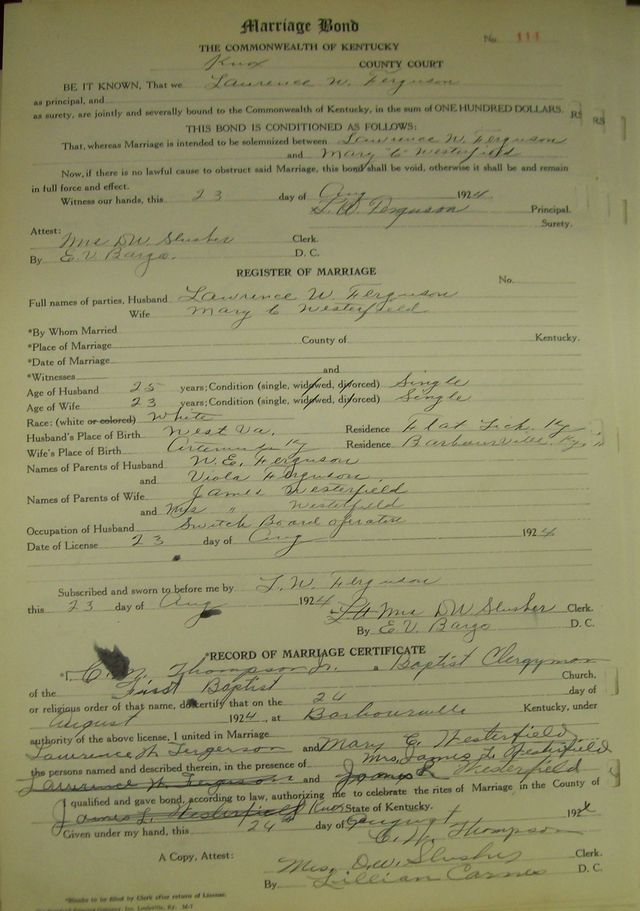 Marriage Bond
THE COMMONWEALTH OF KENTUCKY
No. 111
Knox COUNTY COURT
BE IT KNOWN, That we Lawrence W. Ferguson
as principal, and
as surety, are jointly and severally bound to the Commonwealth of Kentucky, in the sum of ONE HUNDRED DOLLARS.
THIS BOND IS CONDITIONED AS FOLLOWS:
That, whereas Marriage is intended to be solemnized between Lawrence W. Ferguson
and Mary C Westerfield
Now, if there is no lawful cause to obstruct said Marriage, this bond shall be void, otherwise it shall be and remain
in full force and effect.
Witness our hands, this 23 day of Aug 1924
L. W. Ferguson Principal.
Surety.
Attest:
Mrs DW Slusher Clerk.
By E. V. Bargo. D. C.
REGISTER OF MARRIAGE
No.
Full names of parties, Husband Lawrence W. Ferguson
Wife Mary C Westerfield
*By Whom Married
*Place of Marriage County of Kentucky.
*Date of Marriage
*Witnesses and
Age of Husband 25 years; Condition (single, widowed, divorced) Single
Age of Wife 23 years; Condition (single, widowed, divorced) Single
Race: (white or colored) White
Husband's Place of Birth West Va. Residence Flat Lick, Ky
Wife's Place of Birth Artemus Ky Residence Barbourville, Ky,
Names of Parents of Husband W. E. Ferguson
and Viola Ferguson
Names of Parents of Wife James Westerfield
and Mrs " Westerfield
Occupation of Husband Switch Board operator
Date of License 23 day of Aug 1924
Subscribed and sworn to before me by L. W. Ferguson
this 23 day of Aug 1924
Mrs DW Slusher Clerk.
By E. V. Bargo D. C.
*RECORD OF MARRIAGE CERTIFICATE
*I, C. M. Thompson Jr. a Baptist Clergyman
of the First Baptist Church,
or religious order of that name, do certify that on the 24 day of
August 1924, at Barbourville Kentucky, under
authority of the above license, I united in Marriage
Lawrence W. Fergerson and Mary C. Westerfield
the persons named and described therein, in the presence of Mrs. James L. Westerfield
Lawrence W. Ferguson and James L Westerfield
I qualified and gave bond, according to law, authorizing me to celebrate the rites of Marriage in the County of
James L. Westerfield Knox State of Kentucky.
Given under my hand, this 24" day of August 192
C. M. Thompson
A Copy, Attest:
Mrs. D.W. Slusher Clerk.
By Lillian Carnes D. C.
*Blanks to be filled by Clerk after return of License.